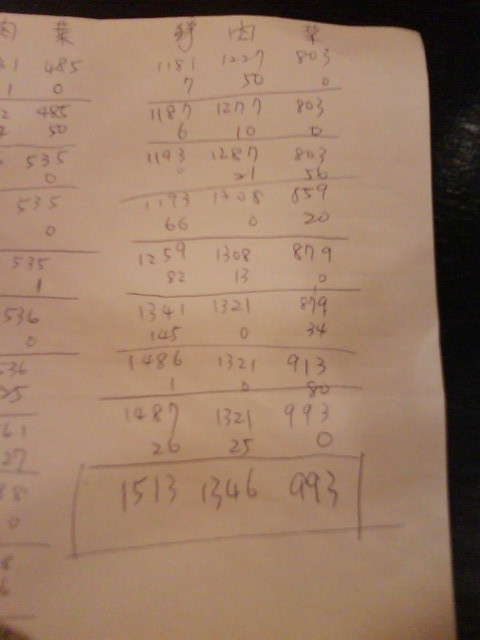 肉 菜 野 肉 菜
485 1181 1227 803
1 0 7 50 0
485 1187 1277 803
50 6 10 0
535 1193 1287 803
0 0 21 56
535 1193 1308 859
0 66 0 20
535 1259 1308 879
1 82 13 0
536 1341 1321 879
0 145 0 34
536 1486 1321 913
25 1 0 80
61 1487 1321 993
27 26 25 0
1513 1346 993